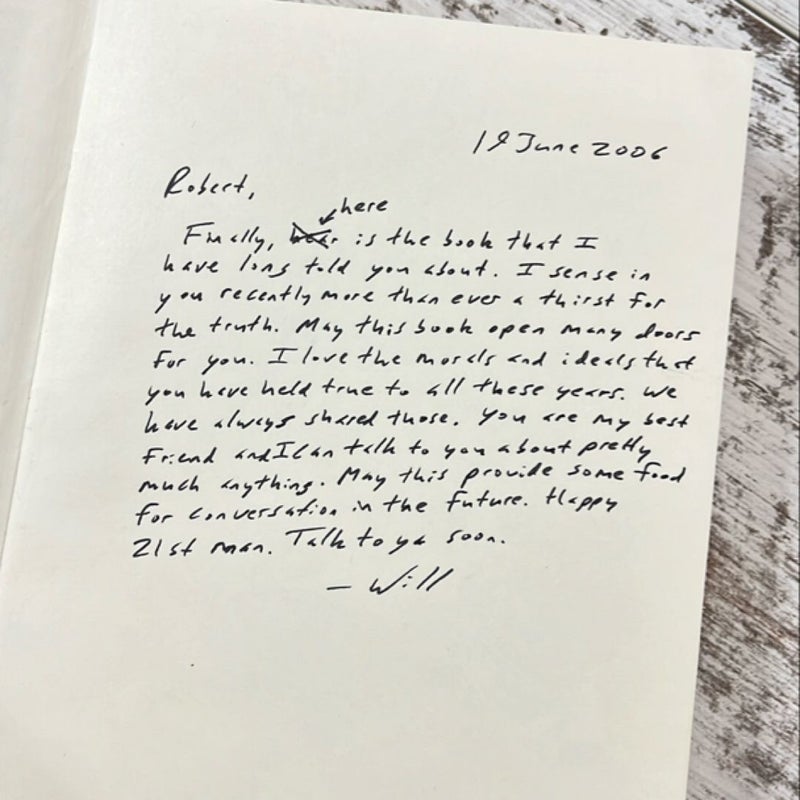 19 June 2006
Robert,
here
Finally, hear is the book that I
have long told you about. I sense in
you recently more than ever a thirst for
the truth. May this book open many doors
for you. I love the morals and ideals that
you have held true to all these years. We
have always shared those. You are my best
friend and I can talk to you about pretty
much anything. May this provide some food
for conversation in the future. Happy
21st man. Talk to ya soon.
— Will